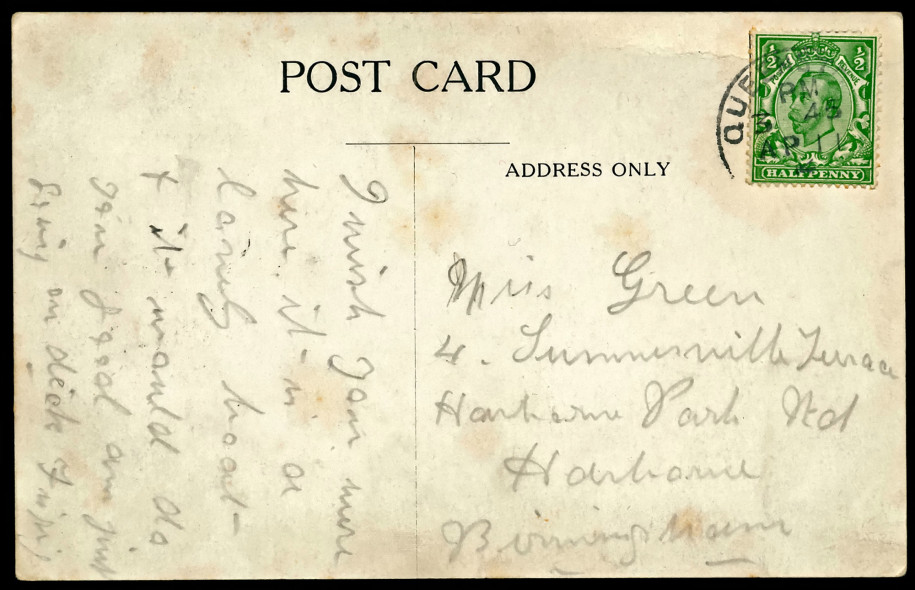 POST CARD
ADDRESS ONLY
½ ½
POSTAGE REVENUE
HALFPENNY
QUEE
PM
3 45
AP 1
I wish you were
here it is a
lovely boat
& it would do
you good am just
going on deck
Miss Green
4. Summerville Terrace
Harborne Park Rd
Harborne
Birmingham